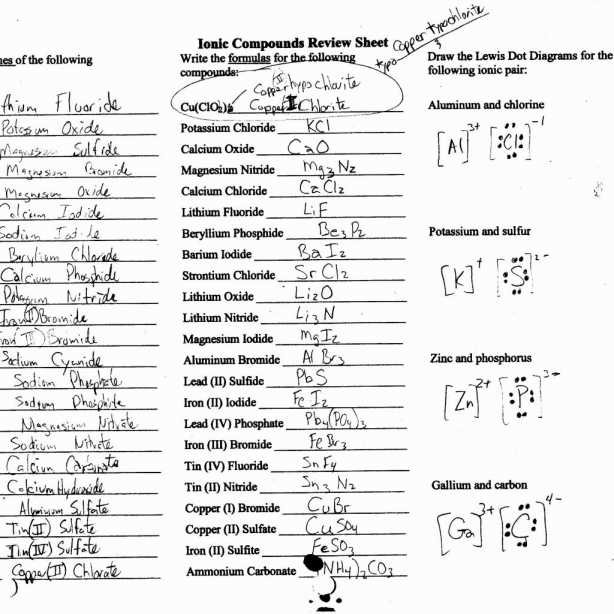 Ionic Compounds Review Sheet
Copper hypochlorite
typo
nes of the following
Write the formulas for the following
compounds:
Draw the Lewis Dot Diagrams for the
following ionic pair:
thium Fluoride
Potassium Oxide
Magnesium Sulfide
Magnesium Bromide
Magnesium Oxide
Calcium Iodide
Sodium Iodide
Berylium Chloride
Calcium Phosphide
Potassium Nitride
Iron(II)Bromide
Iron(III)Bromide
Sodium Cyanide
Sodium Phosphate
Sodium Phosphite
Magnesium Nitrate
Sodium Nitrate
Calcium Carbonate
Calcium Hydroxide
Aluminum Sulfate
Tin(II) Sulfate
Tin(IV) Sulfate
Copper(II) Chlorate
Copper hypochlorite
Cu(ClO2)2 Copper II Chlorite
Potassium Chloride KCl
Calcium Oxide CaO
Magnesium Nitride Mg3N2
Calcium Chloride CaCl2
Lithium Fluoride LiF
Beryllium Phosphide Be3P2
Barium Iodide BaI2
Strontium Chloride SrCl2
Lithium Oxide Li2O
Lithium Nitride Li3N
Magnesium Iodide MgI2
Aluminum Bromide AlBr3
Lead (II) Sulfide PbS
Iron (II) Iodide FeI2
Lead (IV) Phosphate Pb4(PO4)3
Iron (III) Bromide FeBr3
Tin (IV) Fluoride SnF4
Tin (II) Nitride Sn3N2
Copper (I) Bromide CuBr
Copper (II) Sulfate CuSO4
Iron (II) Sulfite FeSO3
Ammonium Carbonate NH4)2CO3
Aluminum and chlorine
[Al]3+ [Cl]-1
Potassium and sulfur
[K]+ [S]2-
Zinc and phosphorus
[Zn]2+ [P]3-
Gallium and carbon
[Ga]3+ [C]4-